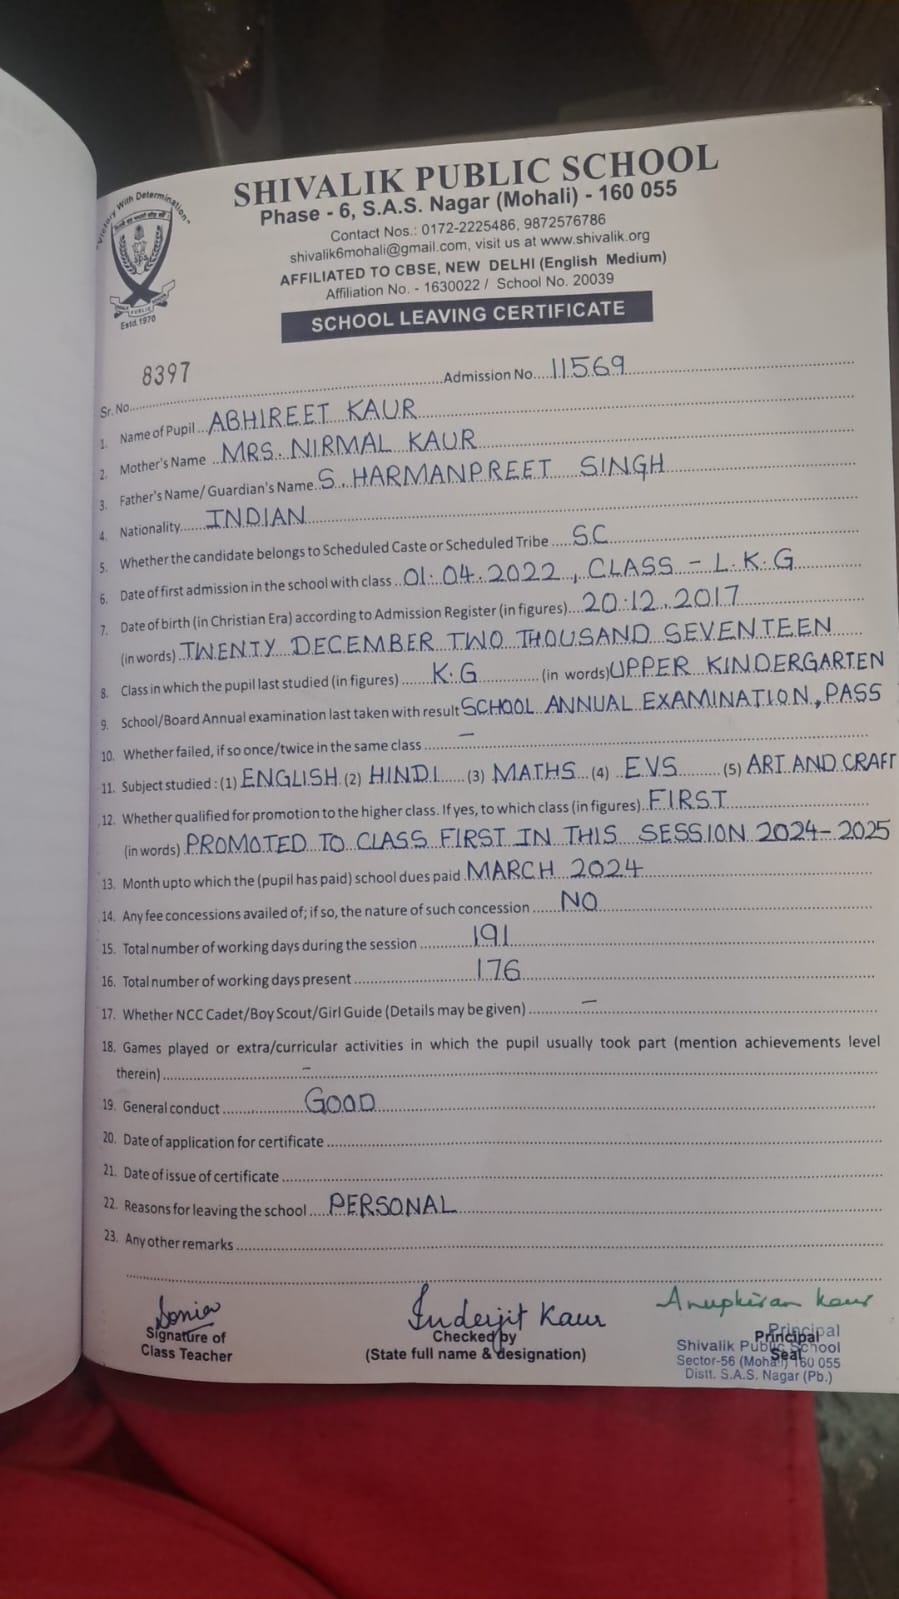 "Victory With Determination"
Estd.1970
SHIVALIK PUBLIC SCHOOL
Phase - 6, S.A.S. Nagar (Mohali) - 160 055
Contact Nos.: 0172-2225486, 9872576786
shivalik6mohali@gmail.com, visit us at www.shivalik.org
AFFILIATED TO CBSE, NEW DELHI (English Medium)
Affiliation No. - 1630022 / School No. 20039
SCHOOL LEAVING CERTIFICATE
Sr. No. 8397 Admission No. 11569
1. Name of Pupil ABHIREET KAUR
2. Mother's Name MRS. NIRMAL KAUR
3. Father's Name/ Guardian's Name S. HARMANPREET SINGH
4. Nationality INDIAN
5. Whether the candidate belongs to Scheduled Caste or Scheduled Tribe SC
6. Date of first admission in the school with class 01.04.2022, CLASS - L.K.G
7. Date of birth (in Christian Era) according to Admission Register (in figures) 20.12.2017
(in words) TWENTY DECEMBER TWO THOUSAND SEVENTEEN
8. Class in which the pupil last studied (in figures) K.G (in words) UPPER KINDERGARTEN
9. School/Board Annual examination last taken with result SCHOOL ANNUAL EXAMINATION, PASS
10. Whether failed, if so once/twice in the same class –
11. Subject studied : (1) ENGLISH (2) HINDI (3) MATHS (4) EVS (5) ART AND CRAFT
12. Whether qualified for promotion to the higher class. If yes, to which class (in figures) FIRST
(in words) PROMOTED TO CLASS FIRST IN THIS SESSION 2024-2025
13. Month upto which the (pupil has paid) school dues paid MARCH 2024
14. Any fee concessions availed of; if so, the nature of such concession NO
15. Total number of working days during the session 191
16. Total number of working days present 176
17. Whether NCC Cadet/Boy Scout/Girl Guide (Details may be given) –
18. Games played or extra/curricular activities in which the pupil usually took part (mention achievements level
therein) –
19. General conduct GOOD
20. Date of application for certificate
21. Date of issue of certificate
22. Reasons for leaving the school PERSONAL
23. Any other remarks
Sonia Inderjit Kaur Anupkiran Kaur
Signature of
Class Teacher
Checked by
(State full name & designation)
Principal
Seal
Principal
Shivalik Public School
Sector-56 (Mohali) 160 055
Distt. S.A.S. Nagar (Pb.)